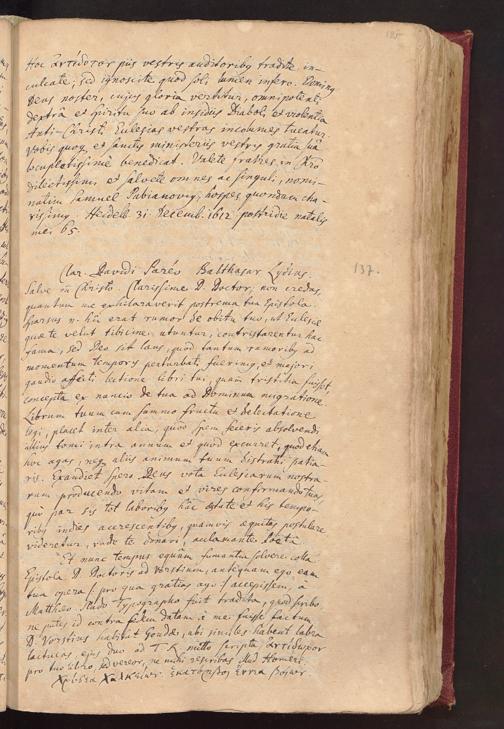 185
Hoc ἀντίδοτον piis vestris auditoribq tradite in-
culcate; sed ignoscite quod soli lumen infero. Dominq
Deus noster, cujus gloria vertitur, omnipotenti
dextra et spiritu suo ab insidiis Diaboli et violentia
Anti-Christi Ecclesias vestras incolumes tueatur
vobis quoq et sanctis ministeriis vestris gratia sua
locuplatissime benedicat. Valete fratres in Xro
dilectissimi et salvete omnes ac singuli, nomi-
natim Samuel Pabianovi, hospes quondam cha-
rissimq. Heidelb. 31. Decemb. 1612 postridie natalis
mei 65.
137.
Clar. Davidi Paréo Balthasar Lydius.
Salve in Christo. Clarissime D. Doctor; non credas
quantum me exhilaraverit postrema tua Epistola.
Sparsus n. hic erat rumor de obitu tuo, ut Ecclesiae
quae te velut tibicine utuntur, contristarentur hac
fama, sed Deo sit laus, quod tantum rumoribq ad
momentum temporis perturbati fuerimq, et majori
gaudio affecti lectione libri tui, quam tristitia fuisset
concepta ex nuncio de tua ad Dominum migratione.
Librum tuum cum summo fructu et delectatione
legi, placet inter alia, quod spem feceris absolvendi
altius tomi intra annum et quod excurret, quod etiam
hoc agas, neq alius animum tuum distrahi patia-
ris. Exaudiet spero Deus vota Ecclesiarum nostra-
rum producendo vitam et vires confirmando tuas,
qui par sis tot laboribq hac aetate et his tempo-
ribq indies accrescentibq, quamvis aequitas postulare
videretur, rude te donari, acclamante Poeta
Et nunc tempus equum fumantia solvere colla.
Epistola D. Doctoris ad Vorstium, antequam ego eam
tua opera (pro qua gratias ago) accepissem, a
Matthaeo typographo fuit tradita, quod scribo
ne putes id contra fidem datam a me fuisse factum.
D. Vorstius habitat Goudae, ubi similes habent labra
lactucas ejus duo ad T. R. mitto scripta, ἀντίδωρον
pro tuo libro, sed vereor, ne mihi rescribas illud Homeri,
Χρύσεα Χαλκείων, ἑκατόμβοι᾽ ἐννεα βοίων